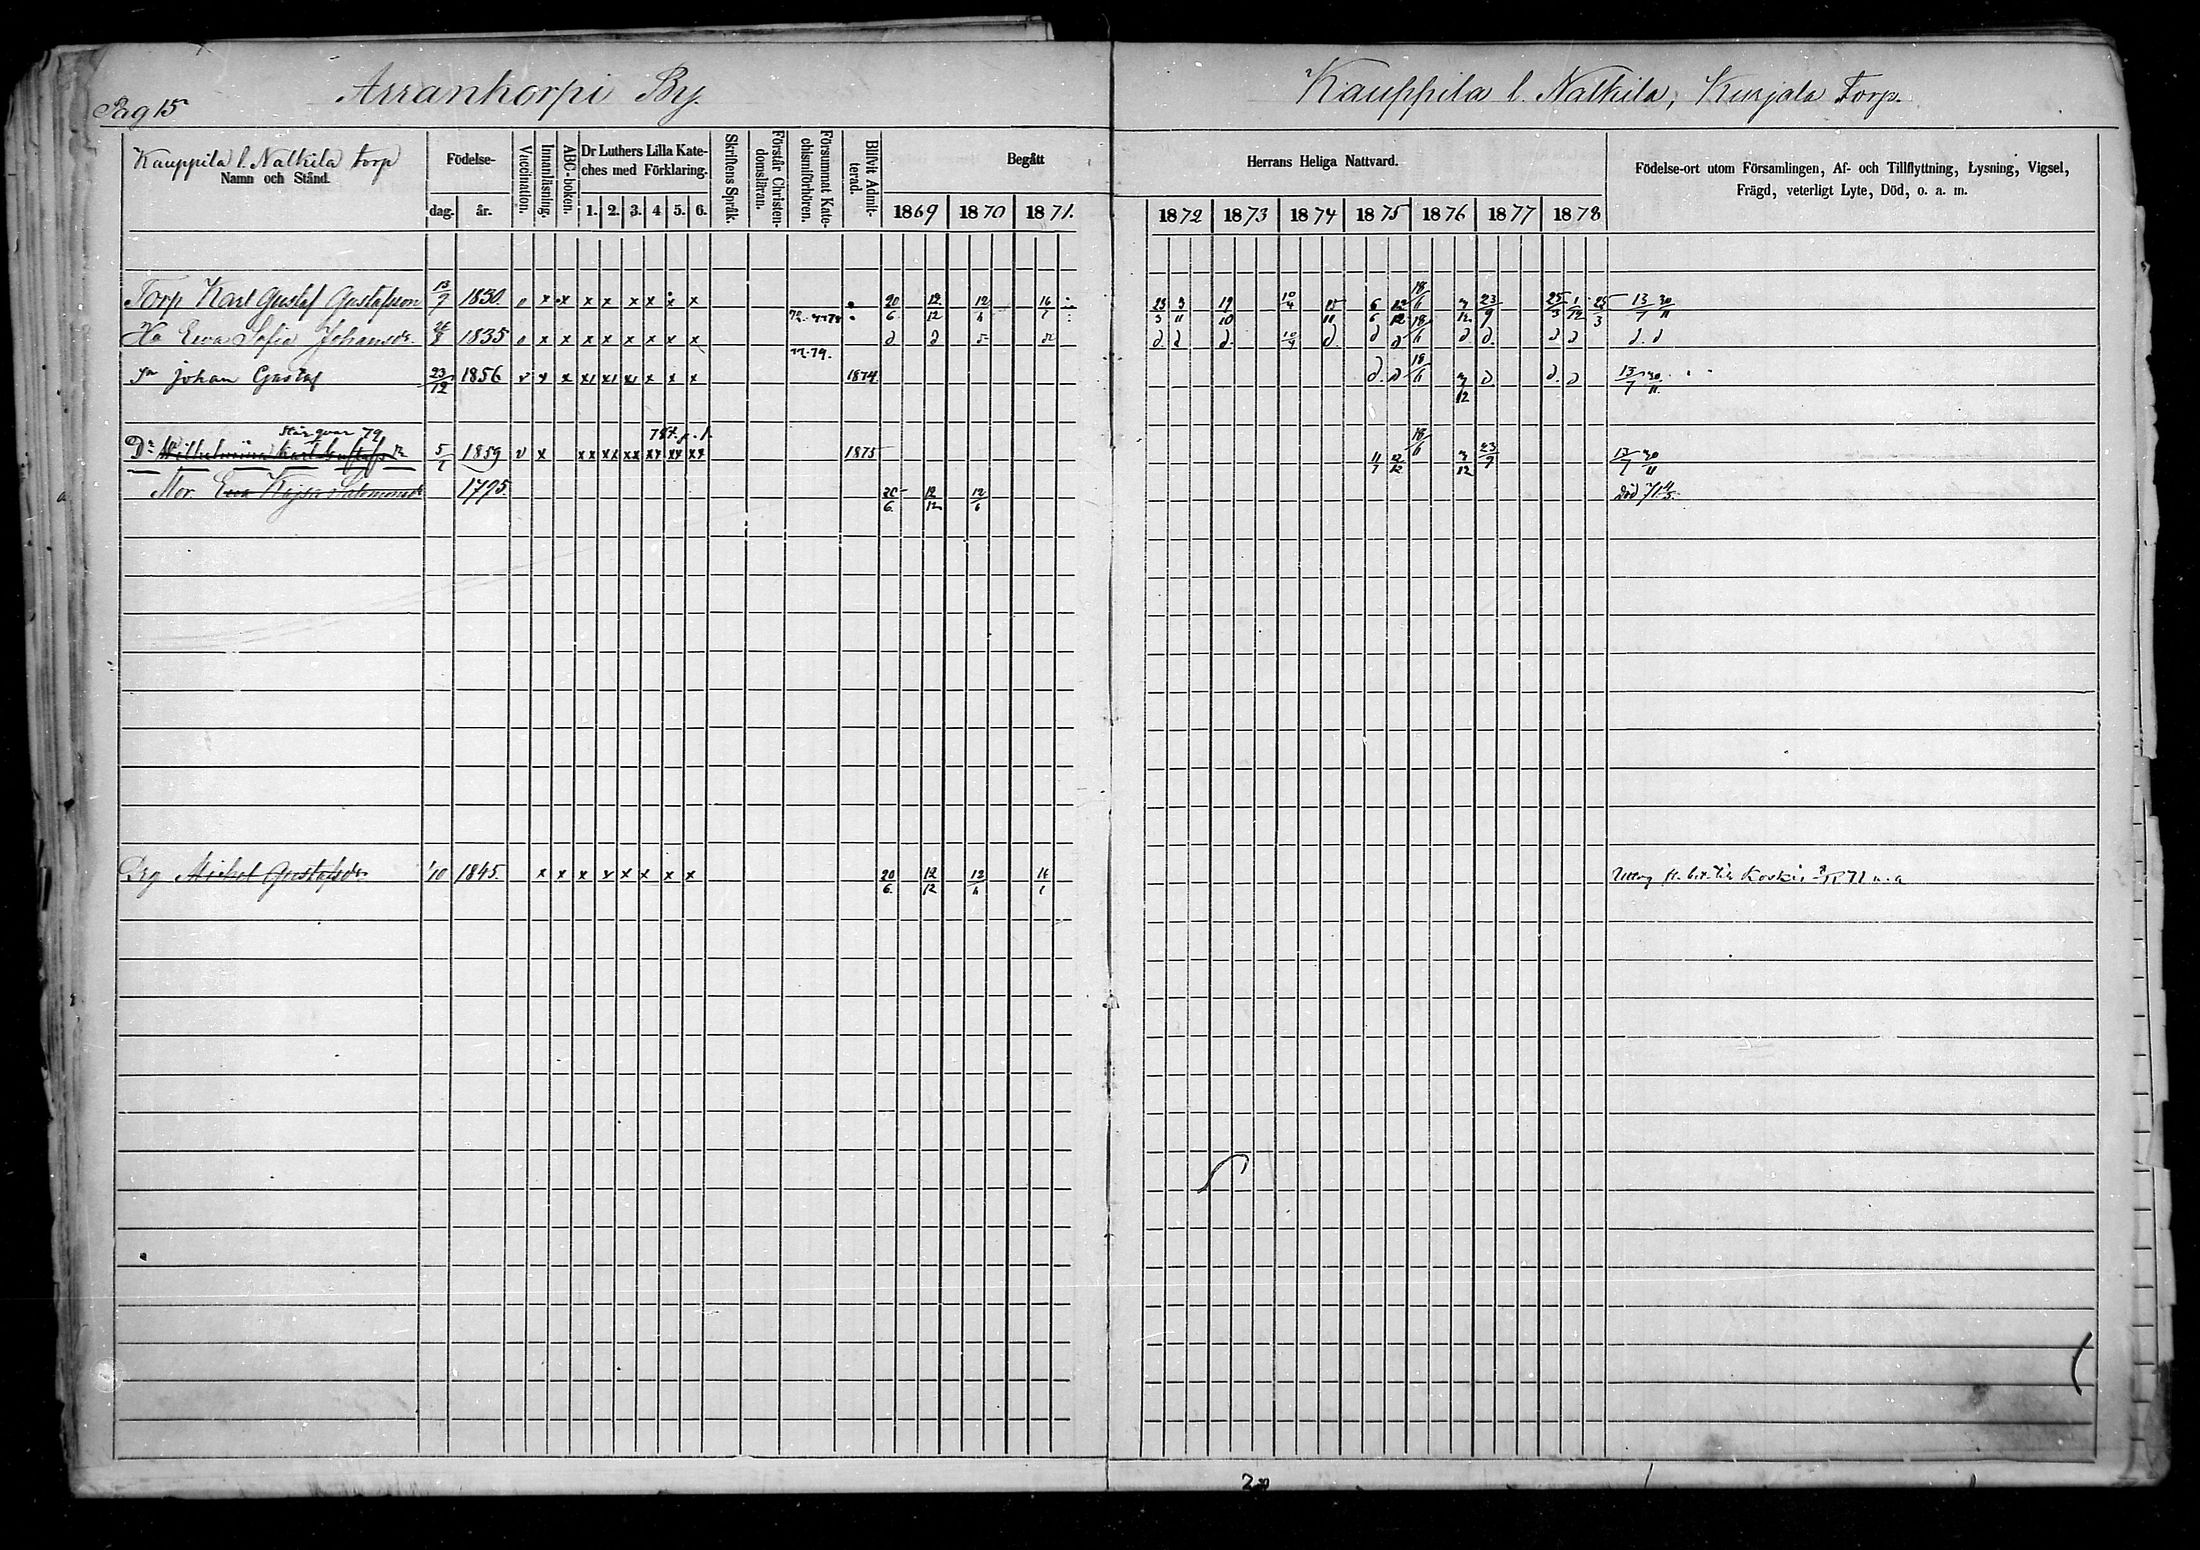 Pag 15
Arrankorpi By.
Kauppila l. Nalkila, Kurjala Torp.
Kauppila l. Nalkila torp
Namn och Stånd.
Födelse-
dag. år.
Vaccination.
Innanläsning.
ABC-boken.
Dr Luthers Lilla Kateches med Förklaring.
1. 2. 3. 4 5. 6.
Skriftens Språk.
Förstår Christendomsläran.
Försummat Katechismiförhören.
Blifvit Admitterad.
Begått
Herrans Heliga Nattvard.
1869 1870 1871.
1872 1873 1874 1875 1876 1877 1878
Födelse-ort utom Församlingen, Af- och Tillflyttning, Lysning, Vigsel,
Frägd, veterligt Lyte, Död, o. a. m.
Torp Karl Gustaf Gustafsson 13/7 1830. v x x x x x x x x 20/6 12/12 12/6 16 23/3 3/11 19/10 10/4 15/11 6/6 12/12 18/6 3/12 23/9 25/3 1/12 25/3 13/7 30/11
Hu Eva Sofia Johansdr. 1835 v x x x x x x x x d d d. d d. 10/4 d. d d 18/6 d. d. d d d. d
77.79.
Sn Johan Gustaf 23/12 1856 v v x x1 x1 x1 x x x 1874 d. d 18/6 3/12 d d. d 13/7 30/11
står qvar 79
Dr Wilhelmina Karl Gustafsdr 5/1 1859 v x xx xx xx xx xx xx 1875 11/7 12/12 18/6 3/12 23/9 13/7 30/11
Mor Eva Kajsa Salomonsdr 1795. 20/6 12/12 12/6 Död 71
Drg Michel Gustafsson 1/10 1845. x x x x x x x x 20/6 12/12 12/6 16 Uttog fl. bet. till Koskis 71